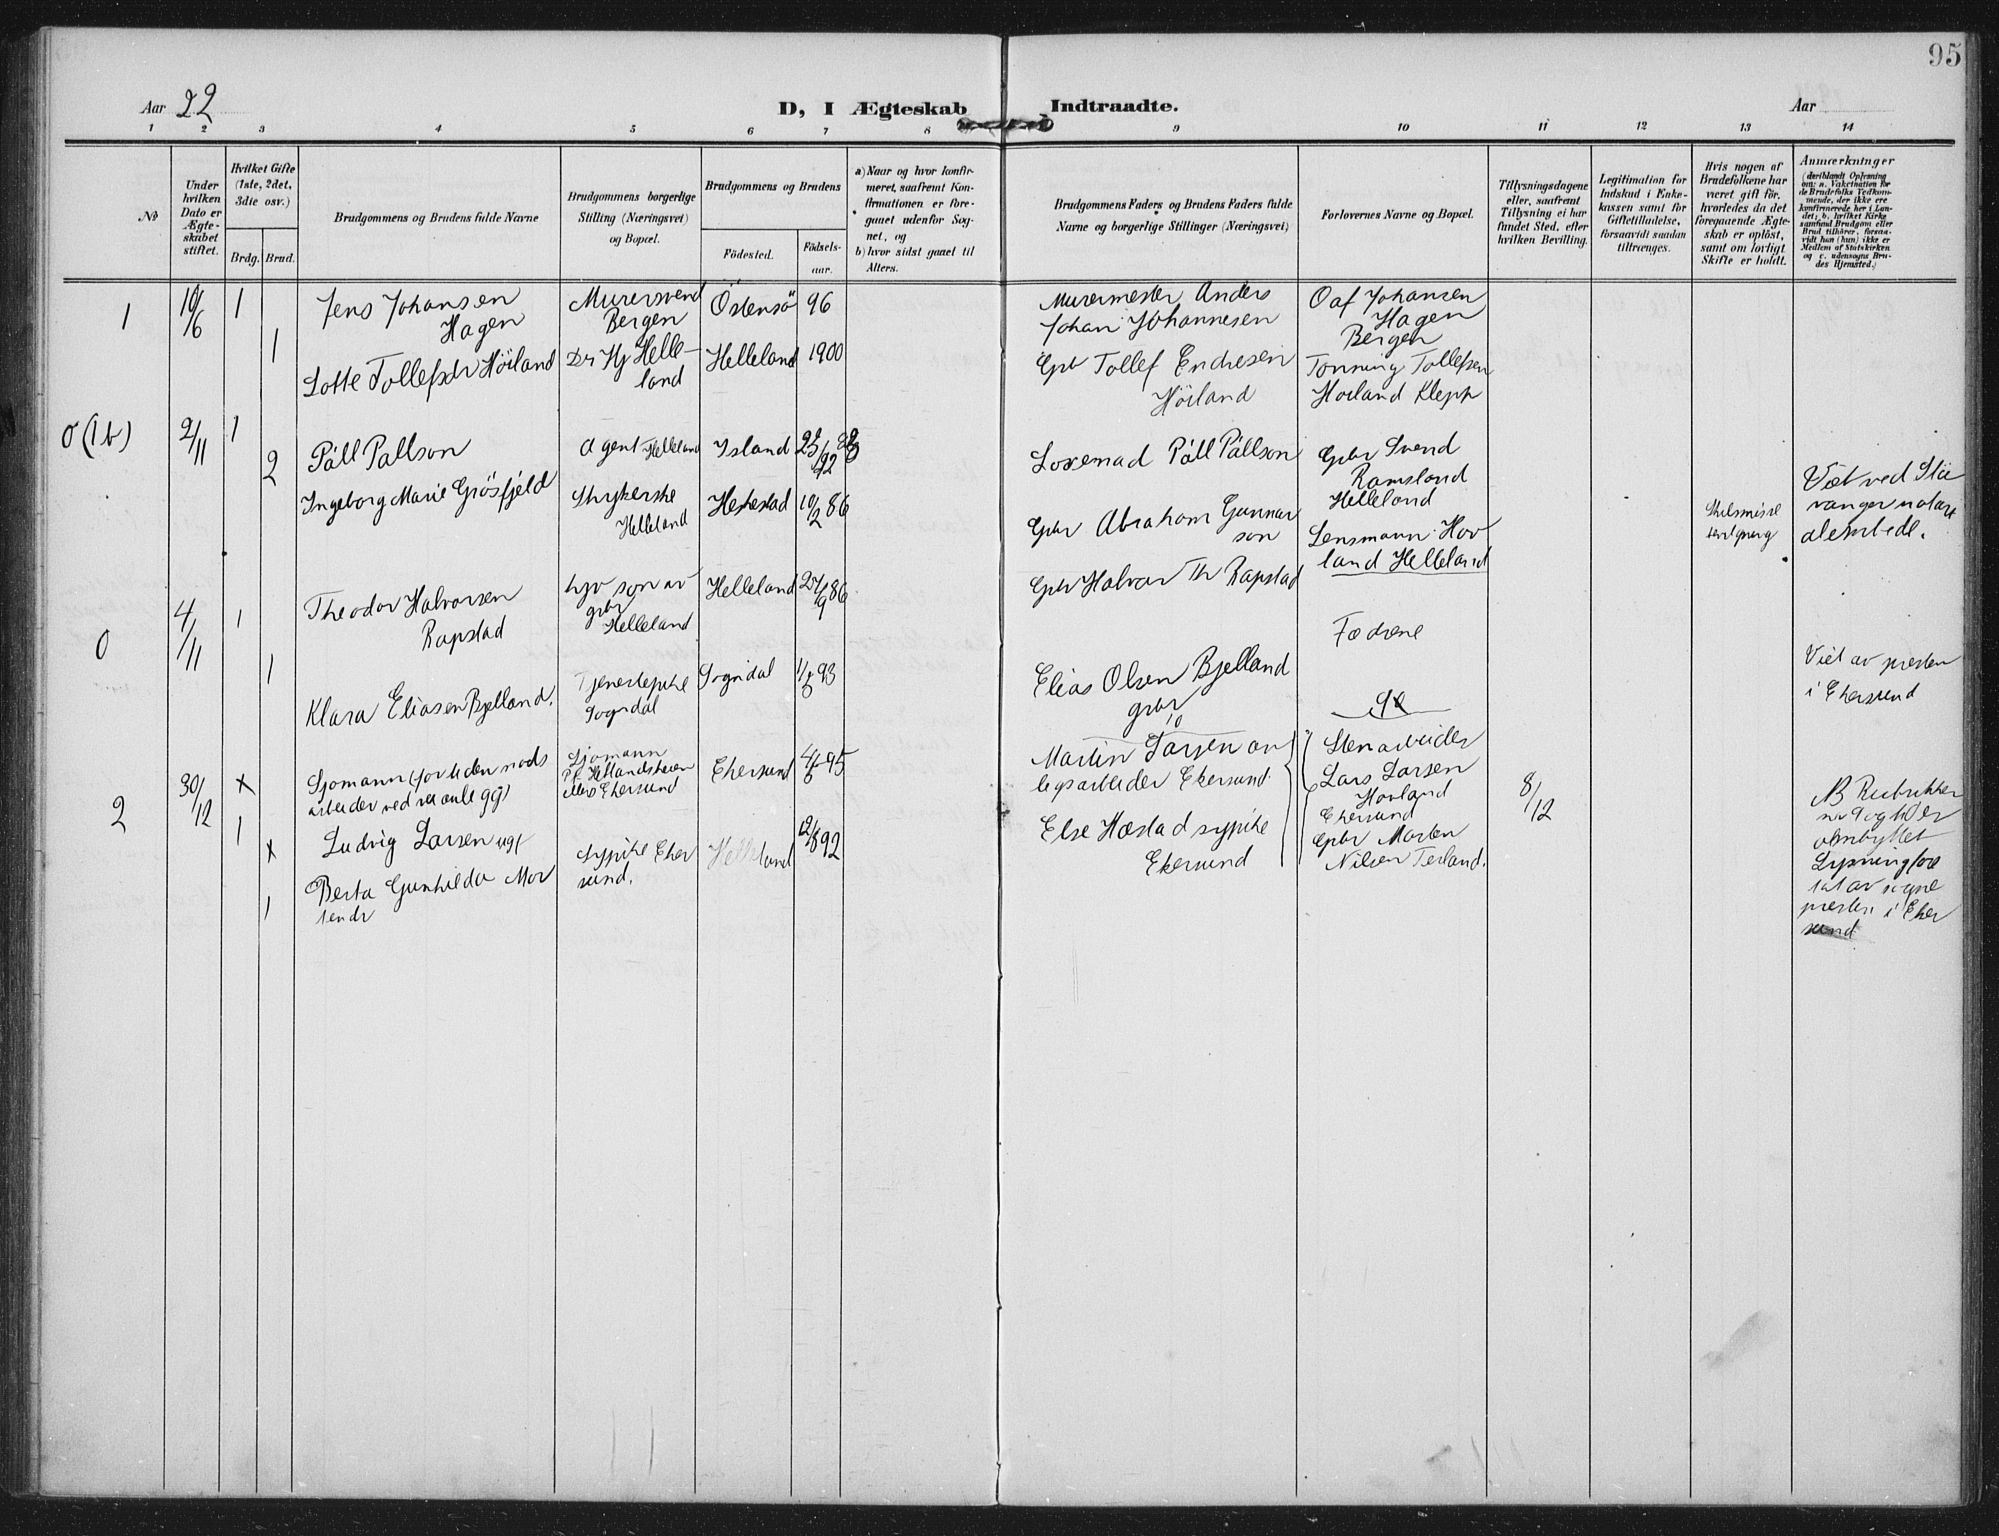 95
Aar 22
D, I Ægteskab Indtraadte.
Aar
1 2 3 4 5 6 7 8 9 10 11 12 13 14
No
Under hvilken Dato er Ægteskabet stiftet.
Hvilket Gifte (1ste, 2det, 3die osv.)
Brdg. Brud.
Brudgommens og Brudens fulde Navne
Brudgommens borgerlige Stilling (Næringsvei) og Bopæl.
Brudgommens og Brudens
Födested.
Födselsaar.
a) Naar og hvor konfirmeret, saafremt Konfirmationen er foregaaet udenfor Sognet, og
b) hvor sidst gaaet til Alters.
Brudgommens Faders og Brudens Faders fulde Navne og borgerlige Stillinger (Næringsvei)
Forlovernes Navne og Bopæl.
Tillysningsdagene eller, saafremt Tillysning ei har fundet Sted, efter hvilken Bevilling.
Legitimation for Indskud i Enkekassen samt for Giftetilladelse, forsaavidt saadan tiltrænges.
Hvis nogen af Brudefolkene har været gift för, hvorledes da det foregaaende Ægteskab er oplöst, samt om lovligt Skifte er holdt.
Anmærkninger
1
10/6
1
Jens Johansen
Hagen
Murersvend
Bergen
Östensö
96
Murermester Anders
Johan Johannesen
Oaf Johansen
Hagen
Bergen
1
Lotte Tollefsdr Höiland
Dr Hj Helle-
land
Helleland
1900
Gbr Tollef Endresen
Höiland
Tonning Tollefsen
Hoiland Klepp
0 (1b)
2/11
1
2
Páll Pallson
Agent Helleland
Island
Losemad Páll Pállson
Gbr Svend
Ramsland
Helleland
Ingeborg Marie Grösfjeld
Strykerske
Helleland
Heskestad
10/2 86
Gbr Abraham Gunnar
son
Lensmann Hov
land Helleland
Viet ved Sta
vanger notari
alembede.
0
4/11
1
Theodor Halvorsen
Rapstad
hjv son av
gbr
Helleland
Helleland
24/9 86
Gbr Halvar Th Rapstad
Fædrene
1
Klara Eliasen Bjelland.
Tjenestepike
Sogndal
Sogndal
93
Elias Olsen Bjelland
gbr
Viet av presten
i Ekersund
2
30/12
x
1
Sjomann (for tiden nods
arbeider ved veianlegg)
Ludvig Larsen ugf
Sjomann
Ekersund
Ekersund
95
Martin Larsen an
legsarbeider Ekersund
Stenarbeider
Lars Larsen
Hovland
Ekersund
8/12
x
1
Berta Gunhilda Mor
tendr
sypike Eker
sund.
Helleland
12/8 92
Else Hæstad sypike
Ekersund
Gbr Morten
Nilsen Terland.
NB Rubrikker
ombyttet
Lysning fore
tat av sogne
presten i Eker
sund